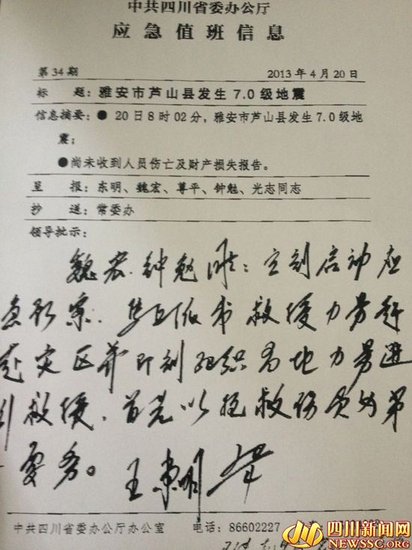 中共四川省委办公厅
应急值班信息
第34期 2013年4月20日
标 题：雅安市芦山县发生7.0级地震
信息摘要：●20日8时02分，雅安市芦山县发生7.0级地
震；
●尚未收到人员伤亡及财产损失报告。
呈 报：东明、魏宏、尊平、钟勉、光志同志
抄 送：常委办
领导批示：
魏宏、钟勉：立刻启动应
急预案，
救援力量赶
赴灾区并即刻组织当地力量进
行救援，首先以抢救伤员为第
一要务。王东明
中共四川省委办公厅办公室 电话：86602227
四川新闻网
NEWSSC.ORG